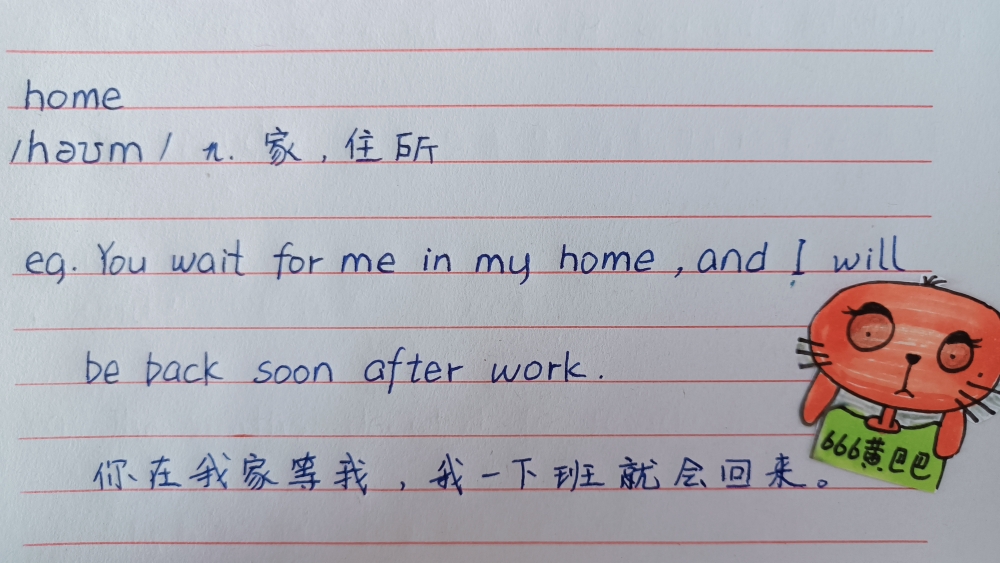 home
/həʊm/ n. 家,住所
eg. You wait for me in my home, and I will
be back soon after work.
你在我家等我,我一下班就会回来。
666黄巴巴